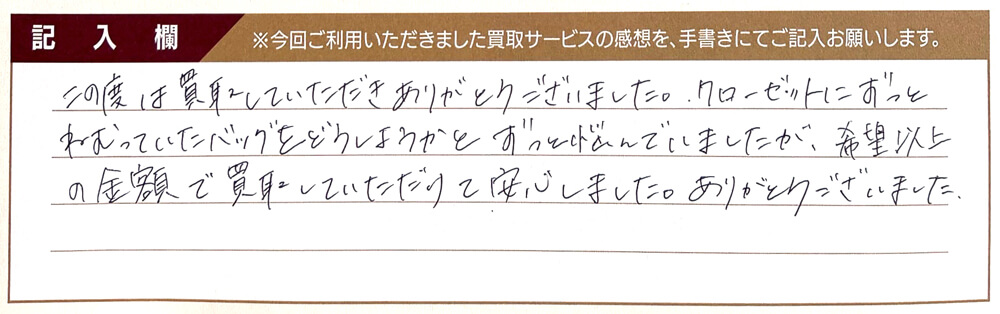 記入欄 ※今回ご利用いただきました買取サービスの感想を、手書きにてご記入お願いします。
この度は買取していただきありがとうございました。クローゼットにずっと
ねむっていたバッグをどうしようかとずっと悩んでいましたが、希望以上
の金額で買取していただけて安心しました。ありがとうございました。